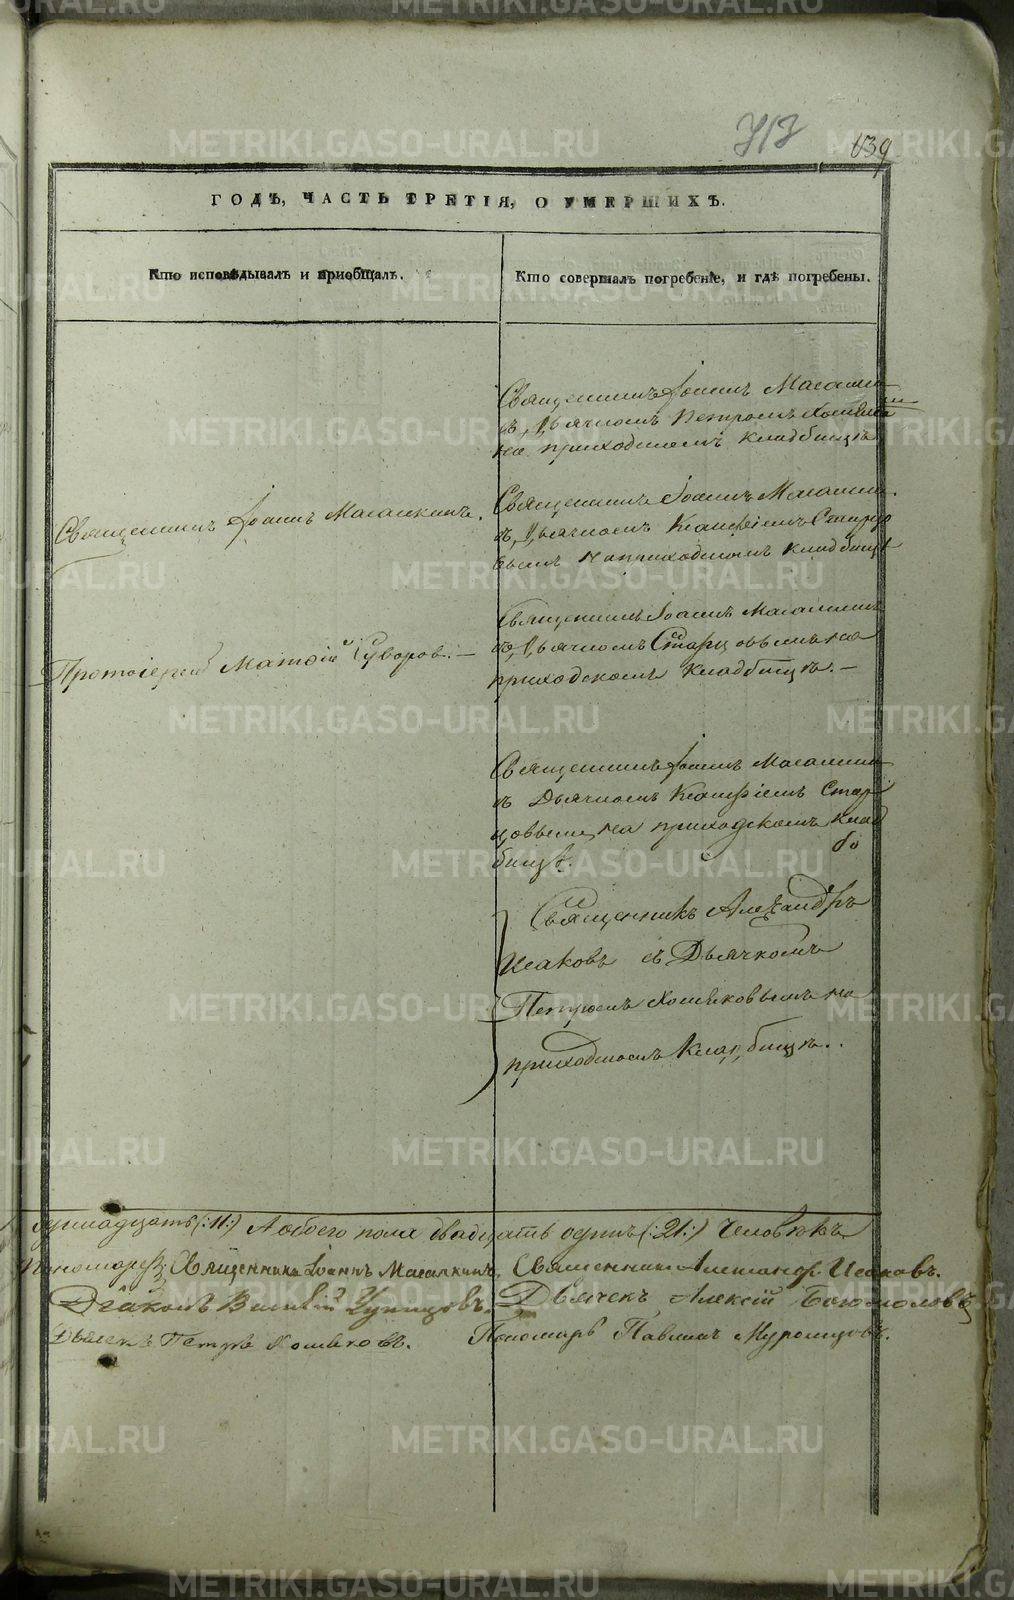 713
639
ГОДЪ, ЧАСТЬ ТРЕТІЯ, О УМЕРШИХЪ.
Кто исповѣдывалъ и пріобщалъ.
Кто совершалъ погребеніе, и гдѣ погребены.
Священникъ Іоаннъ Масалкин
съ Дьячкомъ Петромъ Хомяков
на приходскомъ кладбищѣ
Священникъ Іоаннъ Масалкинъ.
Священникъ Іоаннъ Масалкин.
съ Дьячкомъ Старцо
вымъ На приходскомъ кладбищѣ
Протоіерей Матѳій Суворов. —
Священникъ Іоаннъ Масалкинъ
съ Дьячкомъ Старцовымъ на
приходскомъ кладбищѣ. —
Священникъ Іоаннъ Масалкин
съ Дьячкомъ Стар
цовымъ, на приходскомъ клад
бищѣ.
Священникъ Александръ
Исаковъ съ Дьячкомъ
Петромъ Хомяковымъ на
приходскомъ Кладбищѣ..
одиннадцать (:11:) А обоего пола двадцать одинъ (:21:) Человѣкъ
Священникъ Іоаннъ Масалкинъ, Священникъ Александръ Исаковъ.
Діаконъ Василій Дьячекъ Алексій Богомоловъ
Дьячекъ Петръ Хомяковъ. Пономарь Павелъ Муромцовъ.
METRIKI.GASO-URAL.RU